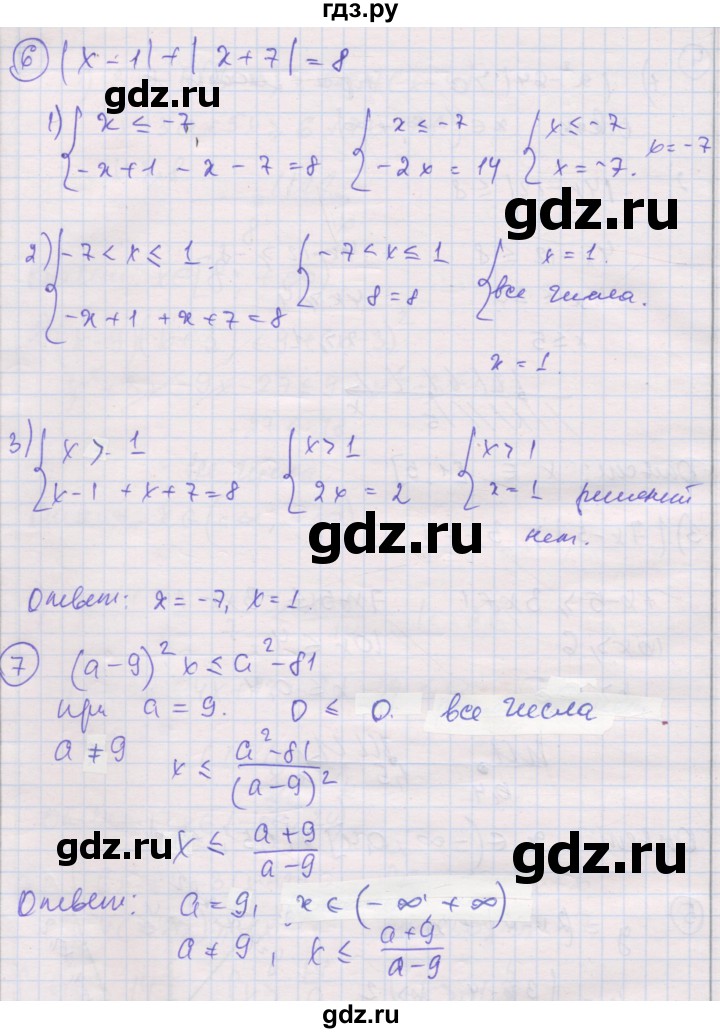 гдз.ру
6 |x-1|+|x+7|=8
gdz.ru
1) { x ≤ -7, { x ≤ -7 { x ≤ -7 x=-7
-x+1-x-7=8 -2x=14 x=-7.
gdz.ru
2) { -7<x≤1. { -7<x≤1 { x=1.
-x+1+x+7=8 8=8 все числа.
x=1.
3) { x>1 { x>1 { x>1
x-1+x+7=8 2x=2 x=1 решений
нет.
gdz.ru
Ответ: x=-7, x=1.
7 (a-9)²x≤a²-81
при a=9. 0≤0. все числа.
a≠9 x≤(a²-81)/(a-9)²
gdz.ru x≤(a+9)/(a-9) gdz.ru
Ответ: a=9, x∈(-∞,+∞)
a≠9, x≤(a+9)/(a-9)
gdz.ru